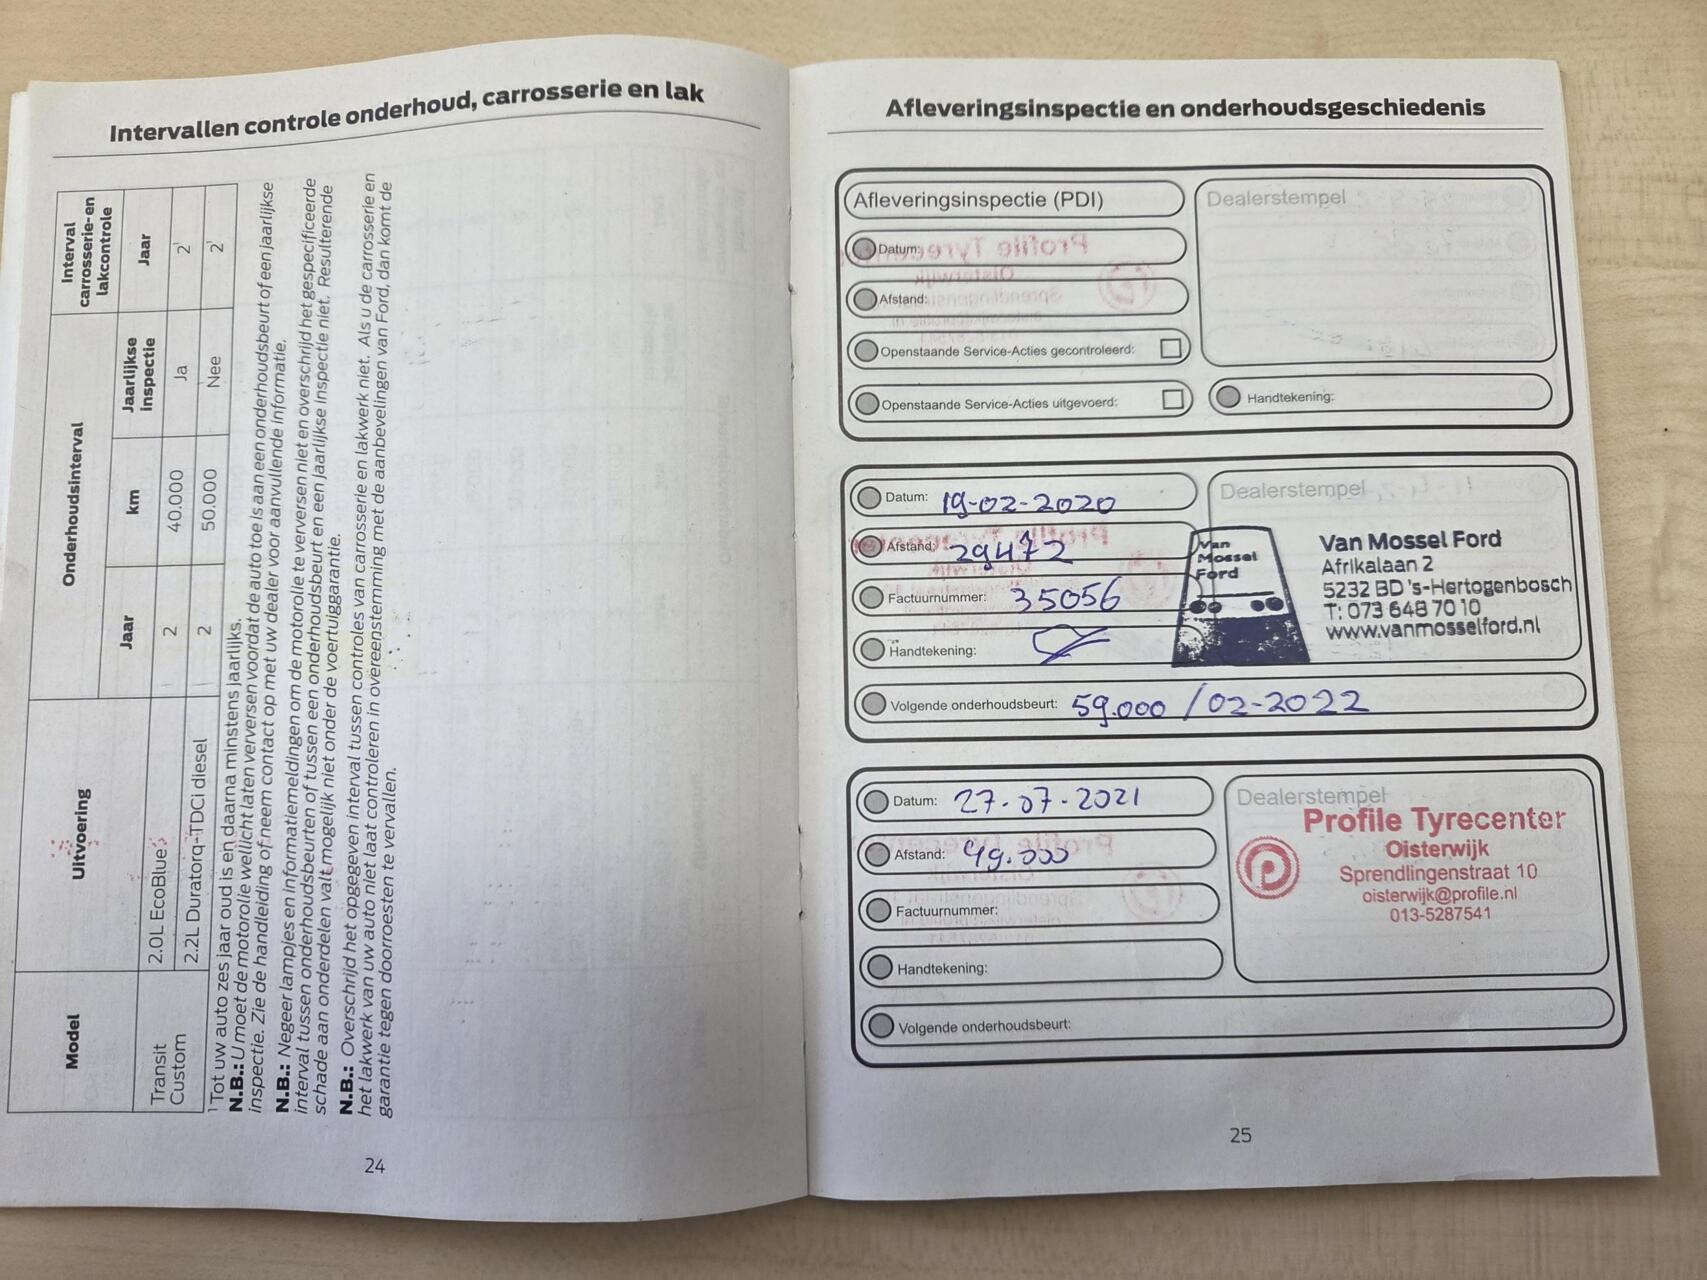 Intervallen controle onderhoud, carrosserie en lak
Model
Uitvoering
Onderhoudsinterval
Interval carrosserie-en lakcontrole
Jaar
km
Jaarlijkse inspectie
Jaar
Transit Custom
2.0L EcoBlue
2
40.000
Ja
2¹
2.2L Duratorq-TDCi diesel
2
50.000
Nee
2¹
¹ Tot uw auto zes jaar oud is en daarna minstens jaarlijks.
N.B.: U moet de motorolie wellicht laten verversen voordat de auto toe is aan een onderhoudsbeurt of een jaarlijkse
inspectie. Zie de handleiding of neem contact op met uw dealer voor aanvullende informatie.
N.B.: Negeer lampjes en informatiemeldingen om de motorolie te verversen niet en overschrijd het gespecificeerde
interval tussen onderhoudsbeurten of tussen een onderhoudsbeurt en een jaarlijkse inspectie niet. Resulterende
schade aan onderdelen valt mogelijk niet onder de voertuiggarantie.
N.B.: Overschrijd het opgegeven interval tussen controles van carrosserie en lakwerk niet. Als u de carrosserie en
het lakwerk van uw auto niet laat controleren in overeenstemming met de aanbevelingen van Ford, dan komt de
garantie tegen doorroesten te vervallen.
24
Afleveringsinspectie en onderhoudsgeschiedenis
Afleveringsinspectie (PDI)
Dealerstempel
Datum:
Afstand:
Openstaande Service-Acties gecontroleerd:
Openstaande Service-Acties uitgevoerd:
Handtekening:
Datum: 19-02-2020
Dealerstempel
Afstand: 29472
Factuurnummer: 35056
Handtekening:
Van
Mossel
Ford
Van Mossel Ford
Afrikalaan 2
5232 BD 's-Hertogenbosch
T: 073 648 70 10
www.vanmosselford.nl
Volgende onderhoudsbeurt: 59.000 / 02-2022
Datum: 27.07.2021
Dealerstempel
Afstand: 49.000
Factuurnummer:
Handtekening:
Profile Tyrecenter
Oisterwijk
Sprendlingenstraat 10
oisterwijk@profile.nl
013-5287541
Volgende onderhoudsbeurt:
25